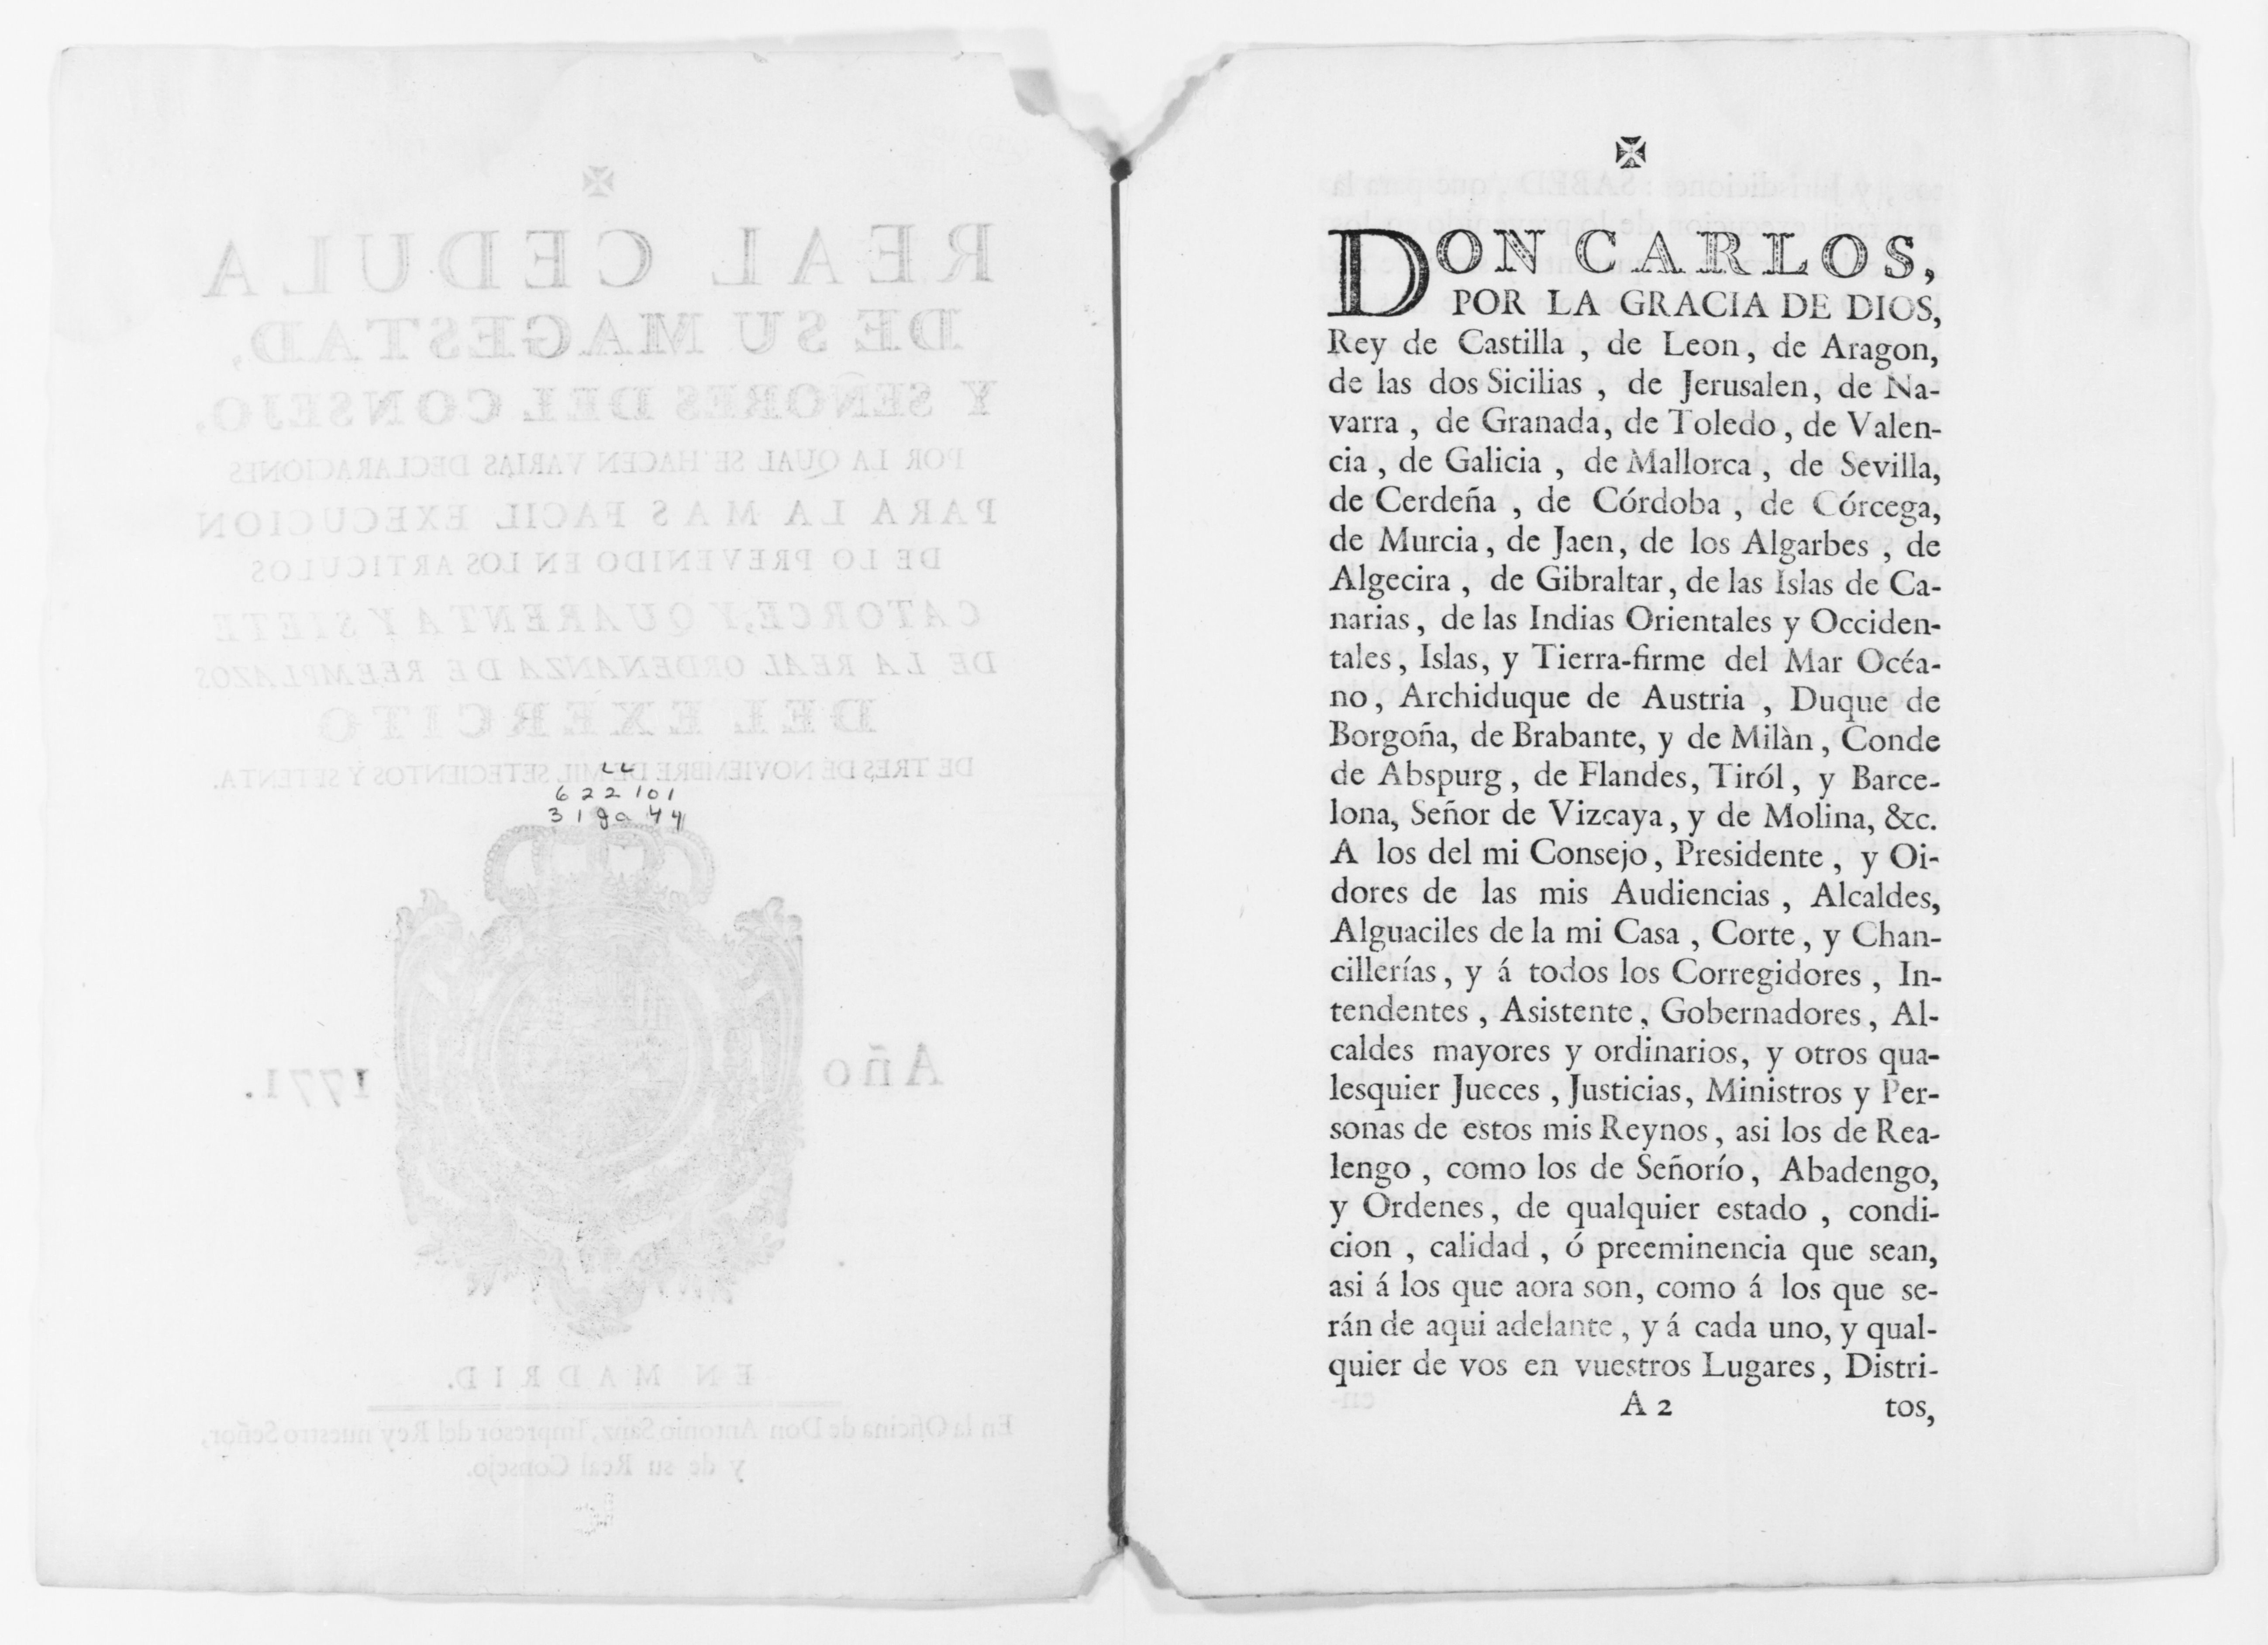 REAL CEDULA
DE SU MAGESTAD,
Y SEÑORES DEL CONSEJO,
POR LA QUAL SE HACEN VARIAS DECLARACIONES
PARA LA MAS FACIL EXECUCION
DE LO PREVENIDO EN LOS ARTICULOS
CATORCE, Y QUARENTA Y SIETE
DE LA REAL ORDENANZA DE REEMPLAZOS
DEL EXERCITO
DE TRES DE NOVIEMBRE DE MIL SETECIENTOS Y SETENTA.
622101
Año 1771.
EN MADRID.
En la Oficina de Don Antonio Sanz, Impresor del Rey nuestro Señor,
y de su Real Consejo.
DON CARLOS,
POR LA GRACIA DE DIOS,
Rey de Castilla , de Leon, de Aragon,
de las dos Sicilias , de Jerusalen, de Na-
varra , de Granada, de Toledo , de Valen-
cia , de Galicia , de Mallorca , de Sevilla,
de Cerdeña , de Córdoba , de Córcega,
de Murcia , de Jaen, de los Algarbes , de
Algecira , de Gibraltar, de las Islas de Ca-
narias, de las Indias Orientales y Occiden-
tales, Islas, y Tierra-firme del Mar Océa-
no, Archiduque de Austria , Duque de
Borgoña, de Brabante, y de Milàn, Conde
de Abspurg , de Flandes, Tiról, y Barce-
lona, Señor de Vizcaya, y de Molina, &c.
A los del mi Consejo, Presidente, y Oi-
dores de las mis Audiencias , Alcaldes,
Alguaciles de la mi Casa , Corte, y Chan-
cillerías, y á todos los Corregidores , In-
tendentes , Asistente, Gobernadores, Al-
caldes mayores y ordinarios, y otros qua-
lesquier Jueces , Justicias, Ministros y Per-
sonas de estos mis Reynos, asi los de Rea-
lengo , como los de Señorío, Abadengo,
y Ordenes, de qualquier estado , condi-
cion , calidad , ó preeminencia que sean,
asi á los que aora son, como á los que se-
rán de aqui adelante, y á cada uno, y qual-
quier de vos en vuestros Lugares, Distri-
A 2 tos,